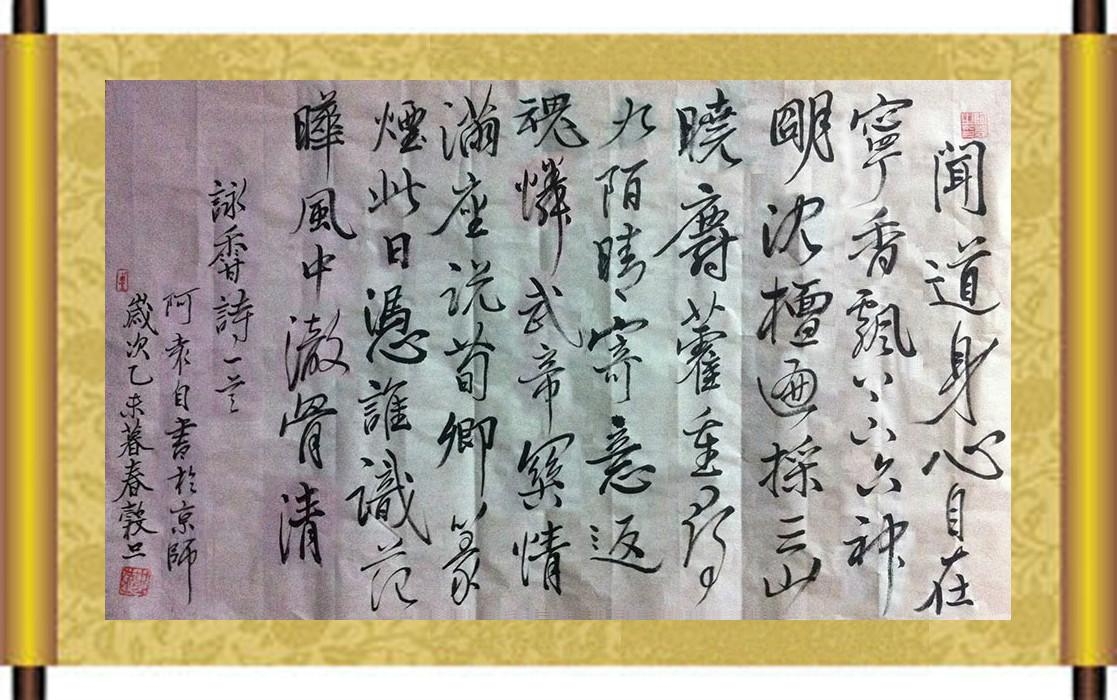 聞道身心自在
寧香飄六神
朙沈檀遍採三山
曉麝藿重尋
九陌晴寄意返
魂憐武帝關情
滿座說荀卿篆
煙此日憑誰識范
曄風中澈骨清
詠香詩一首
阿袁自書於京師
歲次乙未暮春穀旦